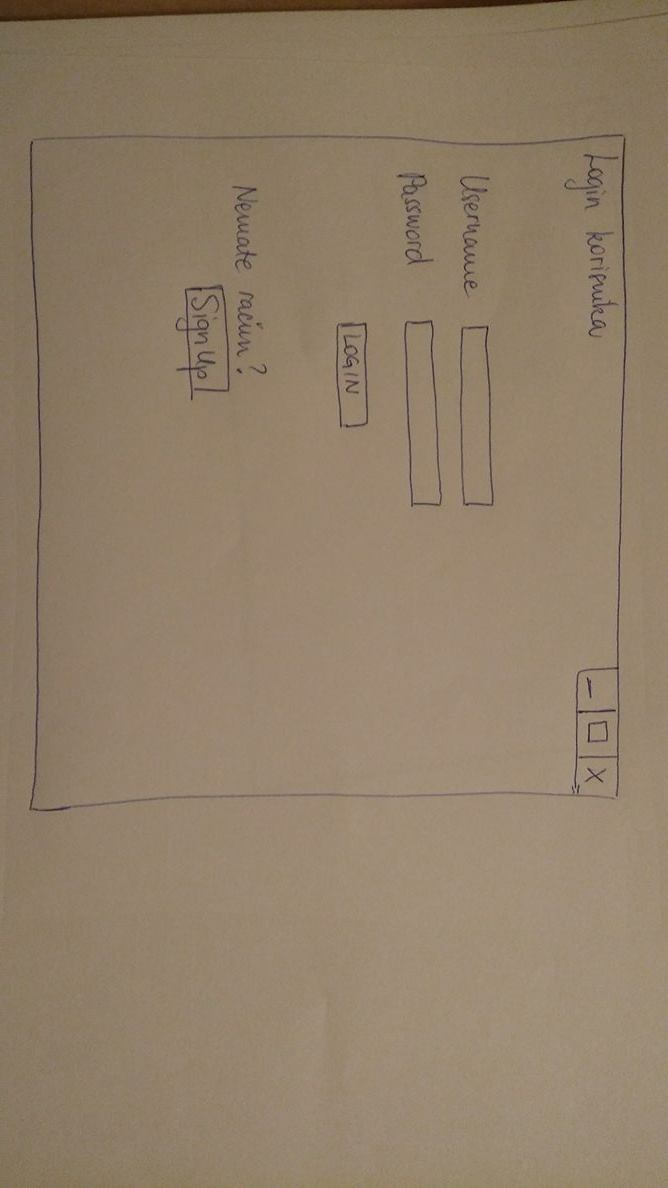 Login korisnika
X
Username
Password
LOGIN
Nemate račun?
Sign Up